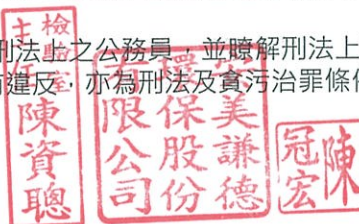 刑法上之公務員，並瞭解刑法上
違反，亦為刑法及貪污治罪條
檢驗室
主
陳資聰
美謙德
環保股份
有限公司
陳
冠宏